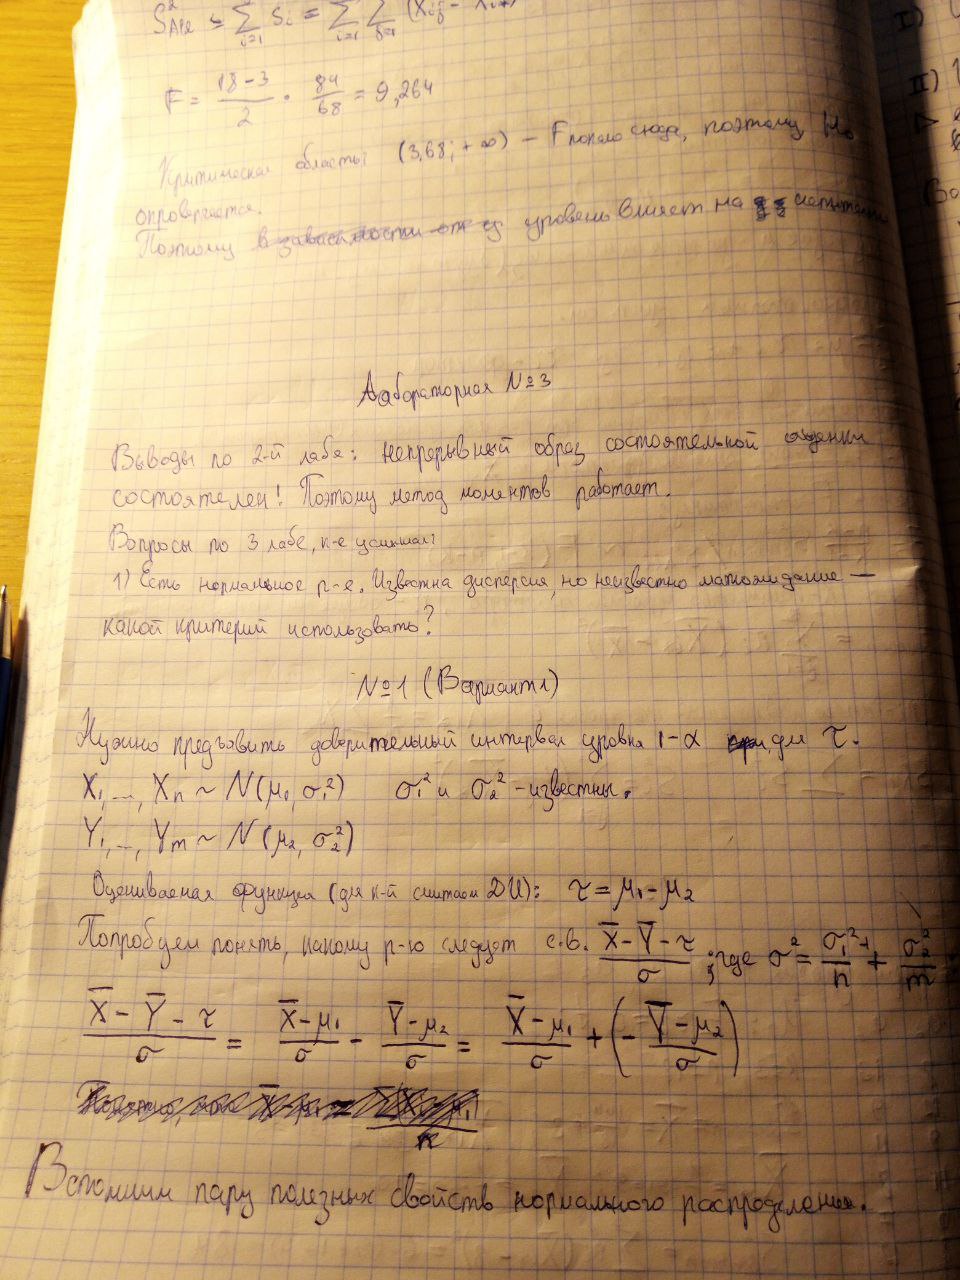 F = (18-3)/2 · 84/68 = 9,264
Критическая область: (3,68; +∞) – F попало сюда, поэтому H₀
опровергается.
Поэтому уровень влияет на
Лабораторная №3
Выводы по 2-й лабе: непрерывный образ состоятельной оценки
состоятелен! Поэтому метод моментов работает.
Вопросы по 3 лабе, к-е услышал:
1) Есть нормальное р-е. Известна дисперсия, но неизвестно матожидание –
какой критерий использовать?
№1 (Вариант 1)
Нужно предъявить доверительный интервал уровня 1-α для τ.
X₁, ..., Xₙ ~ N(μ₁, σ₁²) σ₁² и σ₂² - известны.
Y₁, ..., Yₘ ~ N(μ₂, σ₂²)
Оцениваемая функция (для к-й считаем ДИ): τ = μ₁ - μ₂
Попробуем понять, какому р-ю следует с.в. (X̄ - Ȳ - τ)/σ ; где σ² = σ₁²/n + σ₂²/m
(X̄ - Ȳ - τ)/σ = (X̄ - μ₁)/σ - (Ȳ - μ₂)/σ = (X̄ - μ₁)/σ + (- (Ȳ - μ₂)/σ)
Вспомним пару полезных свойств нормального распределения.